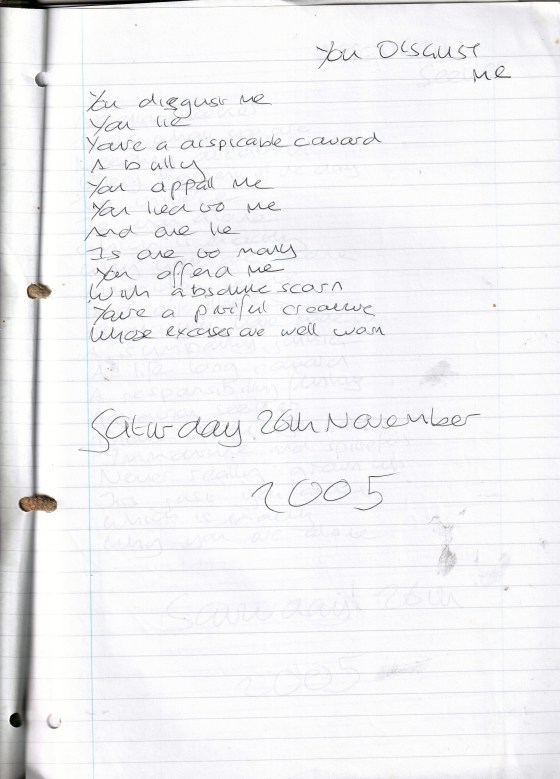 You DISGUST
me
You disgust me
You lie
You're a dispicable coward
A bully
You appall me
You lied to me
And one lie
Is one to many
You offend me
With absolute scorn
You're a pitiful creature
Whose excuses are well worn
Saturday 26th November
2005